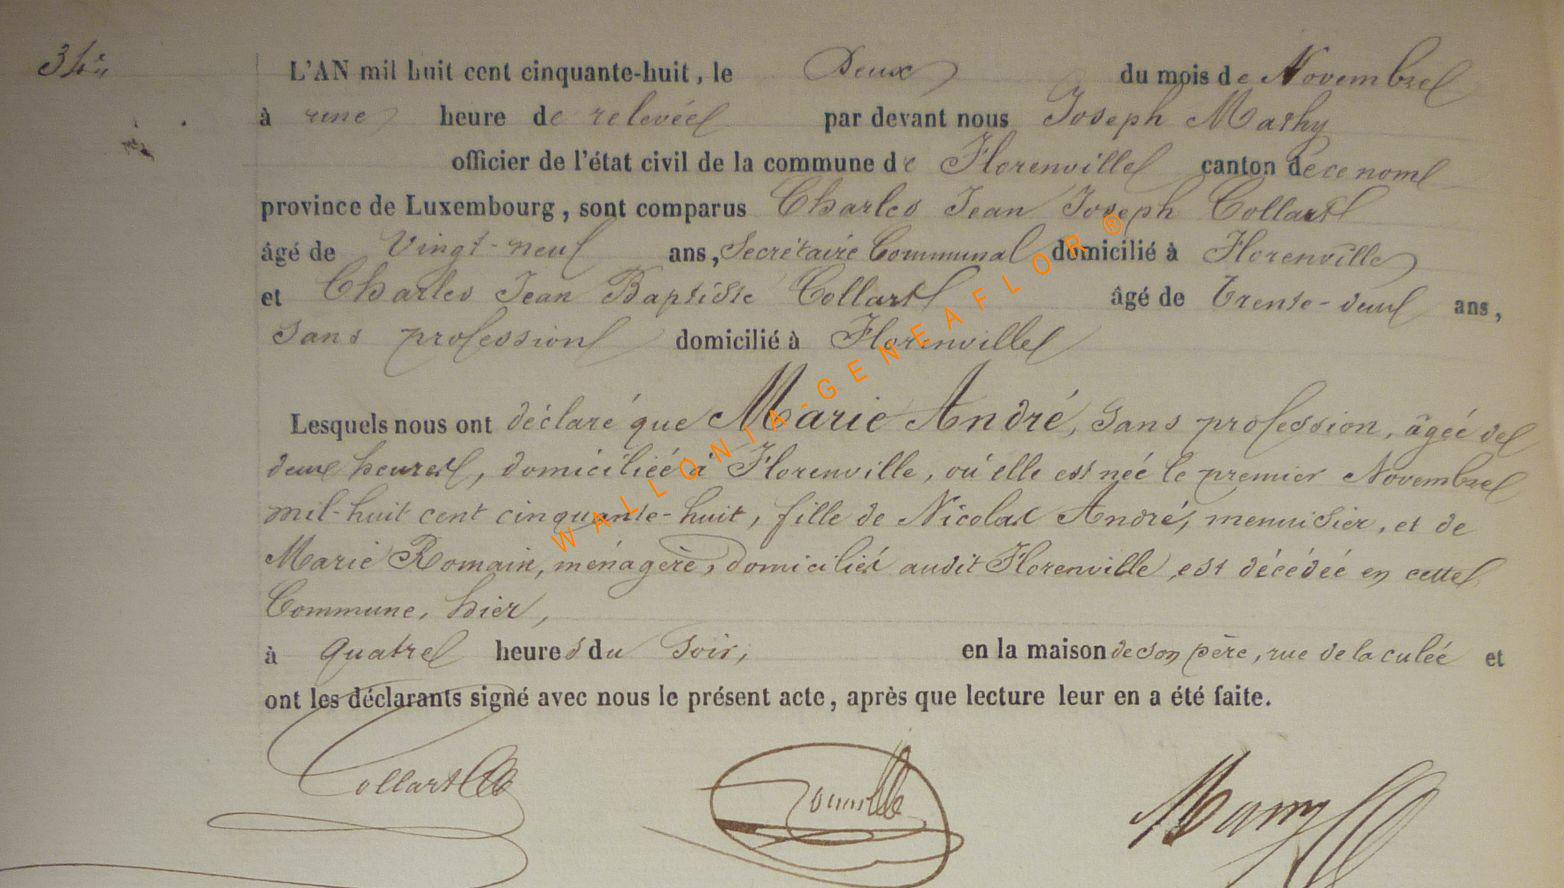 34e
L'AN mil huit cent cinquante-huit, le Deux du mois de Novembre
à une heure de relevée par devant nous Joseph Mathy
officier de l'état civil de la commune de Florenville canton de ce nom
province de Luxembourg, sont comparus Charles Jean Joseph Collart
âgé de Vingt-neuf ans, Secrétaire Communal domicilié à Florenville
et Charles Jean Baptiste Collart âgé de Trente-deux ans,
Sans profession domicilié à Florenville
Lesquels nous ont déclaré que Marie André, Sans profession, âgée de
deux heures, domiciliée à Florenville, où elle est née le premier Novembre
mil-huit cent cinquante-huit, fille de Nicolas André, menuisier, et de
Marie Romain, ménagère, domiciliés audit Florenville, est décédée en cette
Commune, hier,
à quatre heures du Soir, en la maison de son père, rue de la culée et
ont les déclarants signé avec nous le présent acte, après que lecture leur en a été faite.
Collart
WALLONIA-GENEAFLOR ®